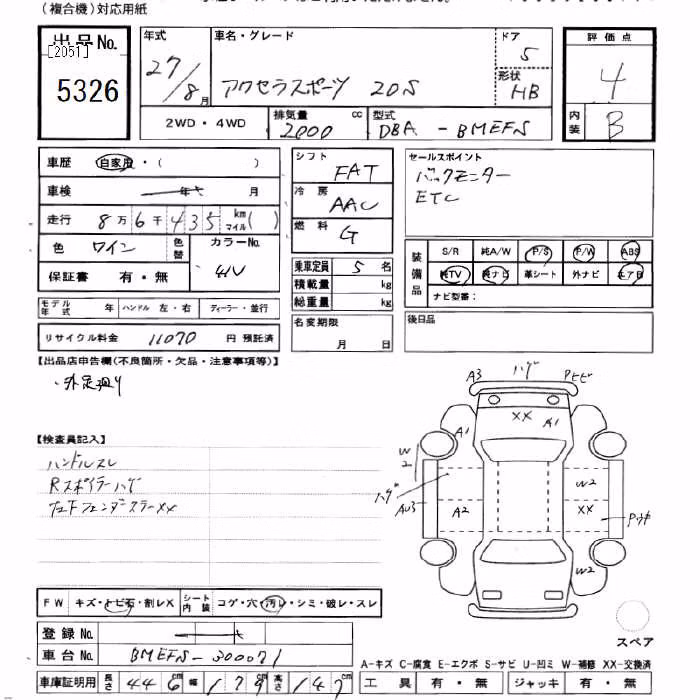 (複合機)対応用紙
出品No.
[2051]
5326
年式
27/8月
車名・グレード
アクセラスポーツ 20S
ドア
5
形状
HB
評価点
4
内装
B
2WD・4WD
排気量 cc
2000
型式
DBA - BMEFS
車歴 自家用・( )
車検 年 月
走行 8万6千435 km マイル( )
色 ワイン 色替
カラーNo.
41V
保証書 有・無
シフト
FAT
冷房
AAC
燃料
G
乗車定員 5名
積載量 kg
総重量 kg
セールスポイント
バックモニター
ETC
装備品
S/R 純A/W P/S P/W ABS
純TV 純ナビ 革シート 外ナビ エアB
ナビ型番:
モデル年式 年 ハンドル 左・右 ディーラー・並行
リサイクル料金 11070 円 預託済
名変期限
月 日
後日品
【出品店申告欄(不良箇所・欠品・注意事項等)】
・外足廻り
【検査員記入】
ハンドルスレ
Rスポイラーハゲ
フェンダーステーXX
A3 ハゲ Pヒビ
XX
A1
A1
W2
ハゲ
W2
AU3
A2
XX
Pウキ
W2
FW キズ・トビ石・割レX
シート内装 コゲ・穴・汚レ・シミ・破レ・スレ
登録No.
車台No. BMEFS-300071
スペア
A-キズ C-腐食 E-エクボ S-サビ U-凹ミ W-補修 XX-交換済
車庫証明用 長さ 446 幅 179 高さ 147
工具 有・無 ジャッキ 有・無